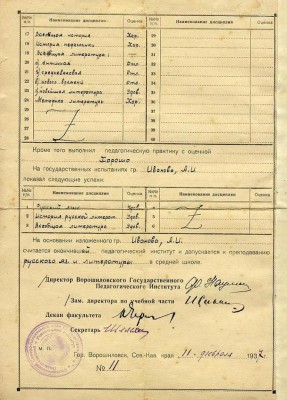 №№ п/п. Наименование дисциплин Оценка №№ п/п. Наименование дисциплин Оценка
17 Всеобщая история Хор. 29
18 История педагогики Хор. 30
19 Всеобщая литература: 31
20 а) античная Отл. 32
21 б) средневековая Отл. 33
22 в) нового времени Отл. 34
23 г) новейшая литература Удов. 35
24 Методика литературы Хор. 36
25 37
26 38
27 39
28 40
Кроме того выполнил педагогическую практику с оценкой
Хорошо
На государственных испытаниях гр. Иванова, А.И.
показал следующие успехи:
№№ п/п. Наименование дисциплин Оценка №№ п/п. Наименование дисциплин Оценка
1 Русский язык Удов. 4
2 История русской литерат. Удов. 5
3 Всеобщая литература Удов. 6
На основании изложенного гр. Иванова, А.И.
считается окончившей педагогический институт и допускается к преподаванию
русского яз. и литературы в средней школе.
Директор Ворошиловского Государственного
Педагогического Института
Зам. директора по учебной части
Декан факультета
Секретарь
М. П.
Гор. Ворошиловск, Сев.-Кав. края 11 февраля 1937 г.
№ 11